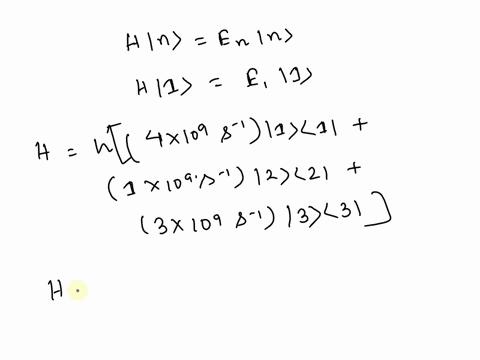 H|n> = En|n>
H|1> = E,|1>
H = h[(4×10⁹ s⁻¹)|1><1| +
(1×10⁹ s⁻¹)|2><2| +
(3×10⁹ s⁻¹)|3><3|]
H